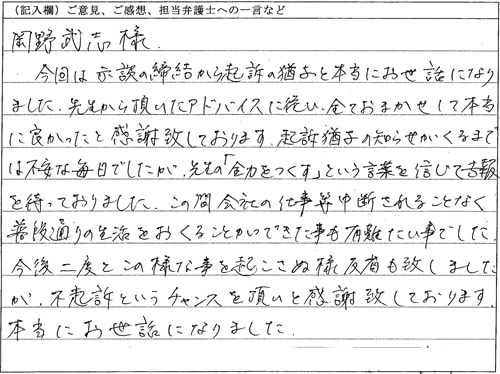 （記入欄）ご意見、ご感想、担当弁護士への一言など
岡野武志様.
今回は示談の締結から起訴の猶予と本当にお世話になり
ました.先生から頂いたアドバイスに従い、全ておまかせして本当
に良かったと感謝致しております.起訴猶予の知らせがくるまで
は不安な毎日でしたが、先生の「全力をつくす」という言葉を信じて吉報
を待っておりました.この間会社の仕事等中断されることなく
普段通りの生活をおくることができた事も有難たい事でした.
今後二度とこの様な事を起こさぬ様反省も致しました
が、不起訴というチャンスを頂いたと感謝致しております.
本当にお世話になりました.